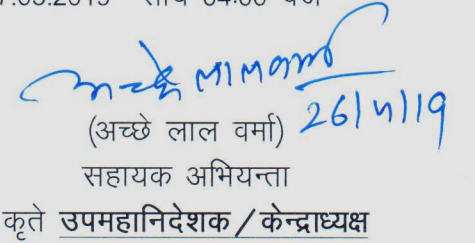 .05.2019 04.00
अच्छे लाल वर्मा
26/4/19
(अच्छे लाल वर्मा)
सहायक अभियन्ता
कृते उपमहानिदेशक / केन्द्राध्यक्ष